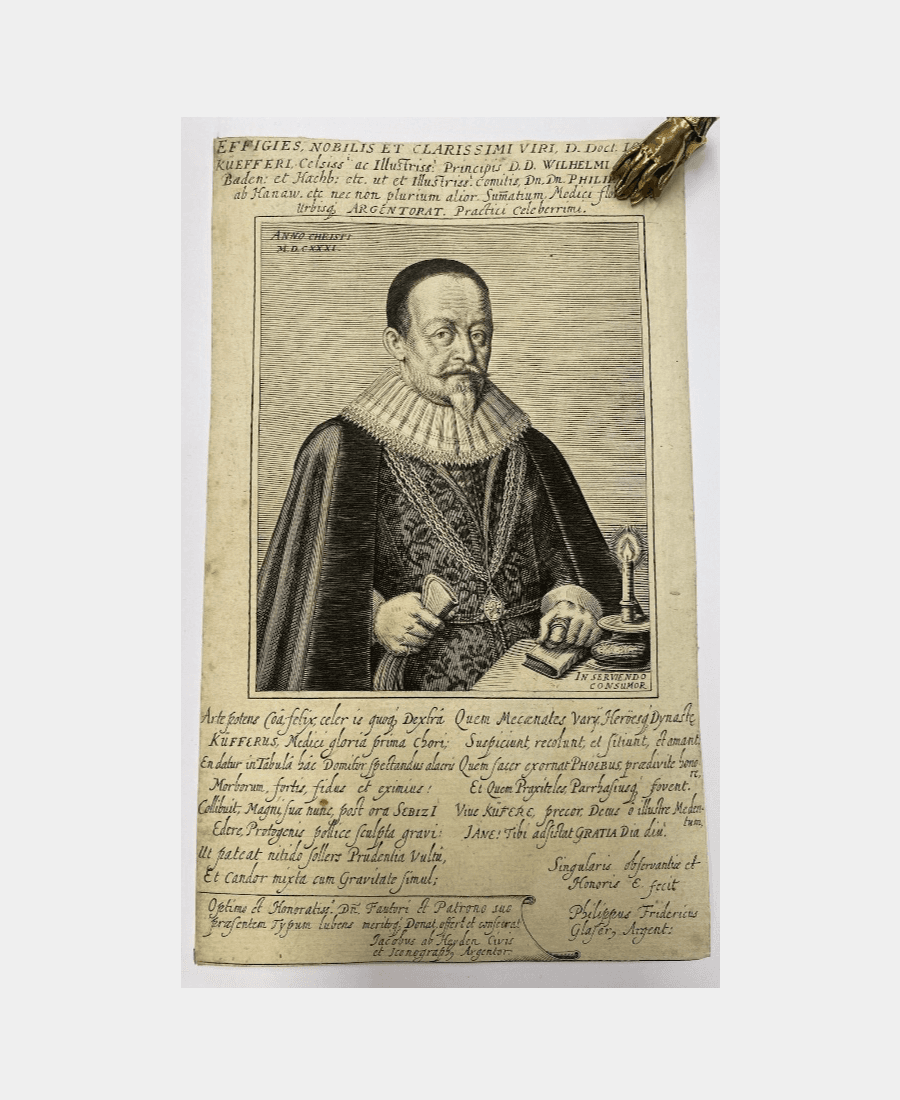 EFFIGIES, NOBILIS ET CLARISSIMI VIRI, D. Doct.
KÜEFFERI, Celsiss.' ac Illustriss.' Principis D.D. WILHELMI
Baden: et Hachb: etc. ut et Illustriss: Comitis, Dn. Dn. PHILI
ab Hanaw. etc nec non plurium alior. Sum̃atium, Medici
Urbisq; ARGENTORAT. Practici Celeberrimi.
ANNO CHRISTI
M.D.CXXXI.
IN SERVIENDO
CONSUMOR
Arte potens Coâ, felix, celer is quoq; Dextrâ
KÜFFERUS, Medici gloria prima Chori;
En datur in Tabulâ hâc Domitor spectandus alacris
Morborum, fortis, fidus et eximius:
Collibuit, Magni, sua nunc, post ora SEBIZI
Edere, Protogenis pollice sculpta gravi:
Ut pateat nitido sollers Prudentia Vultu,
Et Candor mixta cum Gravitate simul;
Quem Mecænates Varÿ, Heröesq; Dynastę
Suspiciunt, recolunt, et sitiunt, et amant;
Quem sacer exornat PHOEBUS prædivite hono-
re,
Et Quem Praxiteles Parrhasiusq; fovent.
Vive KÜFERE, precor, Decus ô illustre Meden-
tum,
JANE! Tibi adsistat GRATIA Dia diù.
Singularis observantiæ et
Honoris E. fecit
Philippus Fridericus
Glaser, Argent:
Optimo et Honoratiss.' Dn̄. Fautori et Patrono suo
præsentem Typum lubens meritoq; Donat, offert et consecrat
Jacobus ab Heyden Civis
et Iconograph9 Argentor.